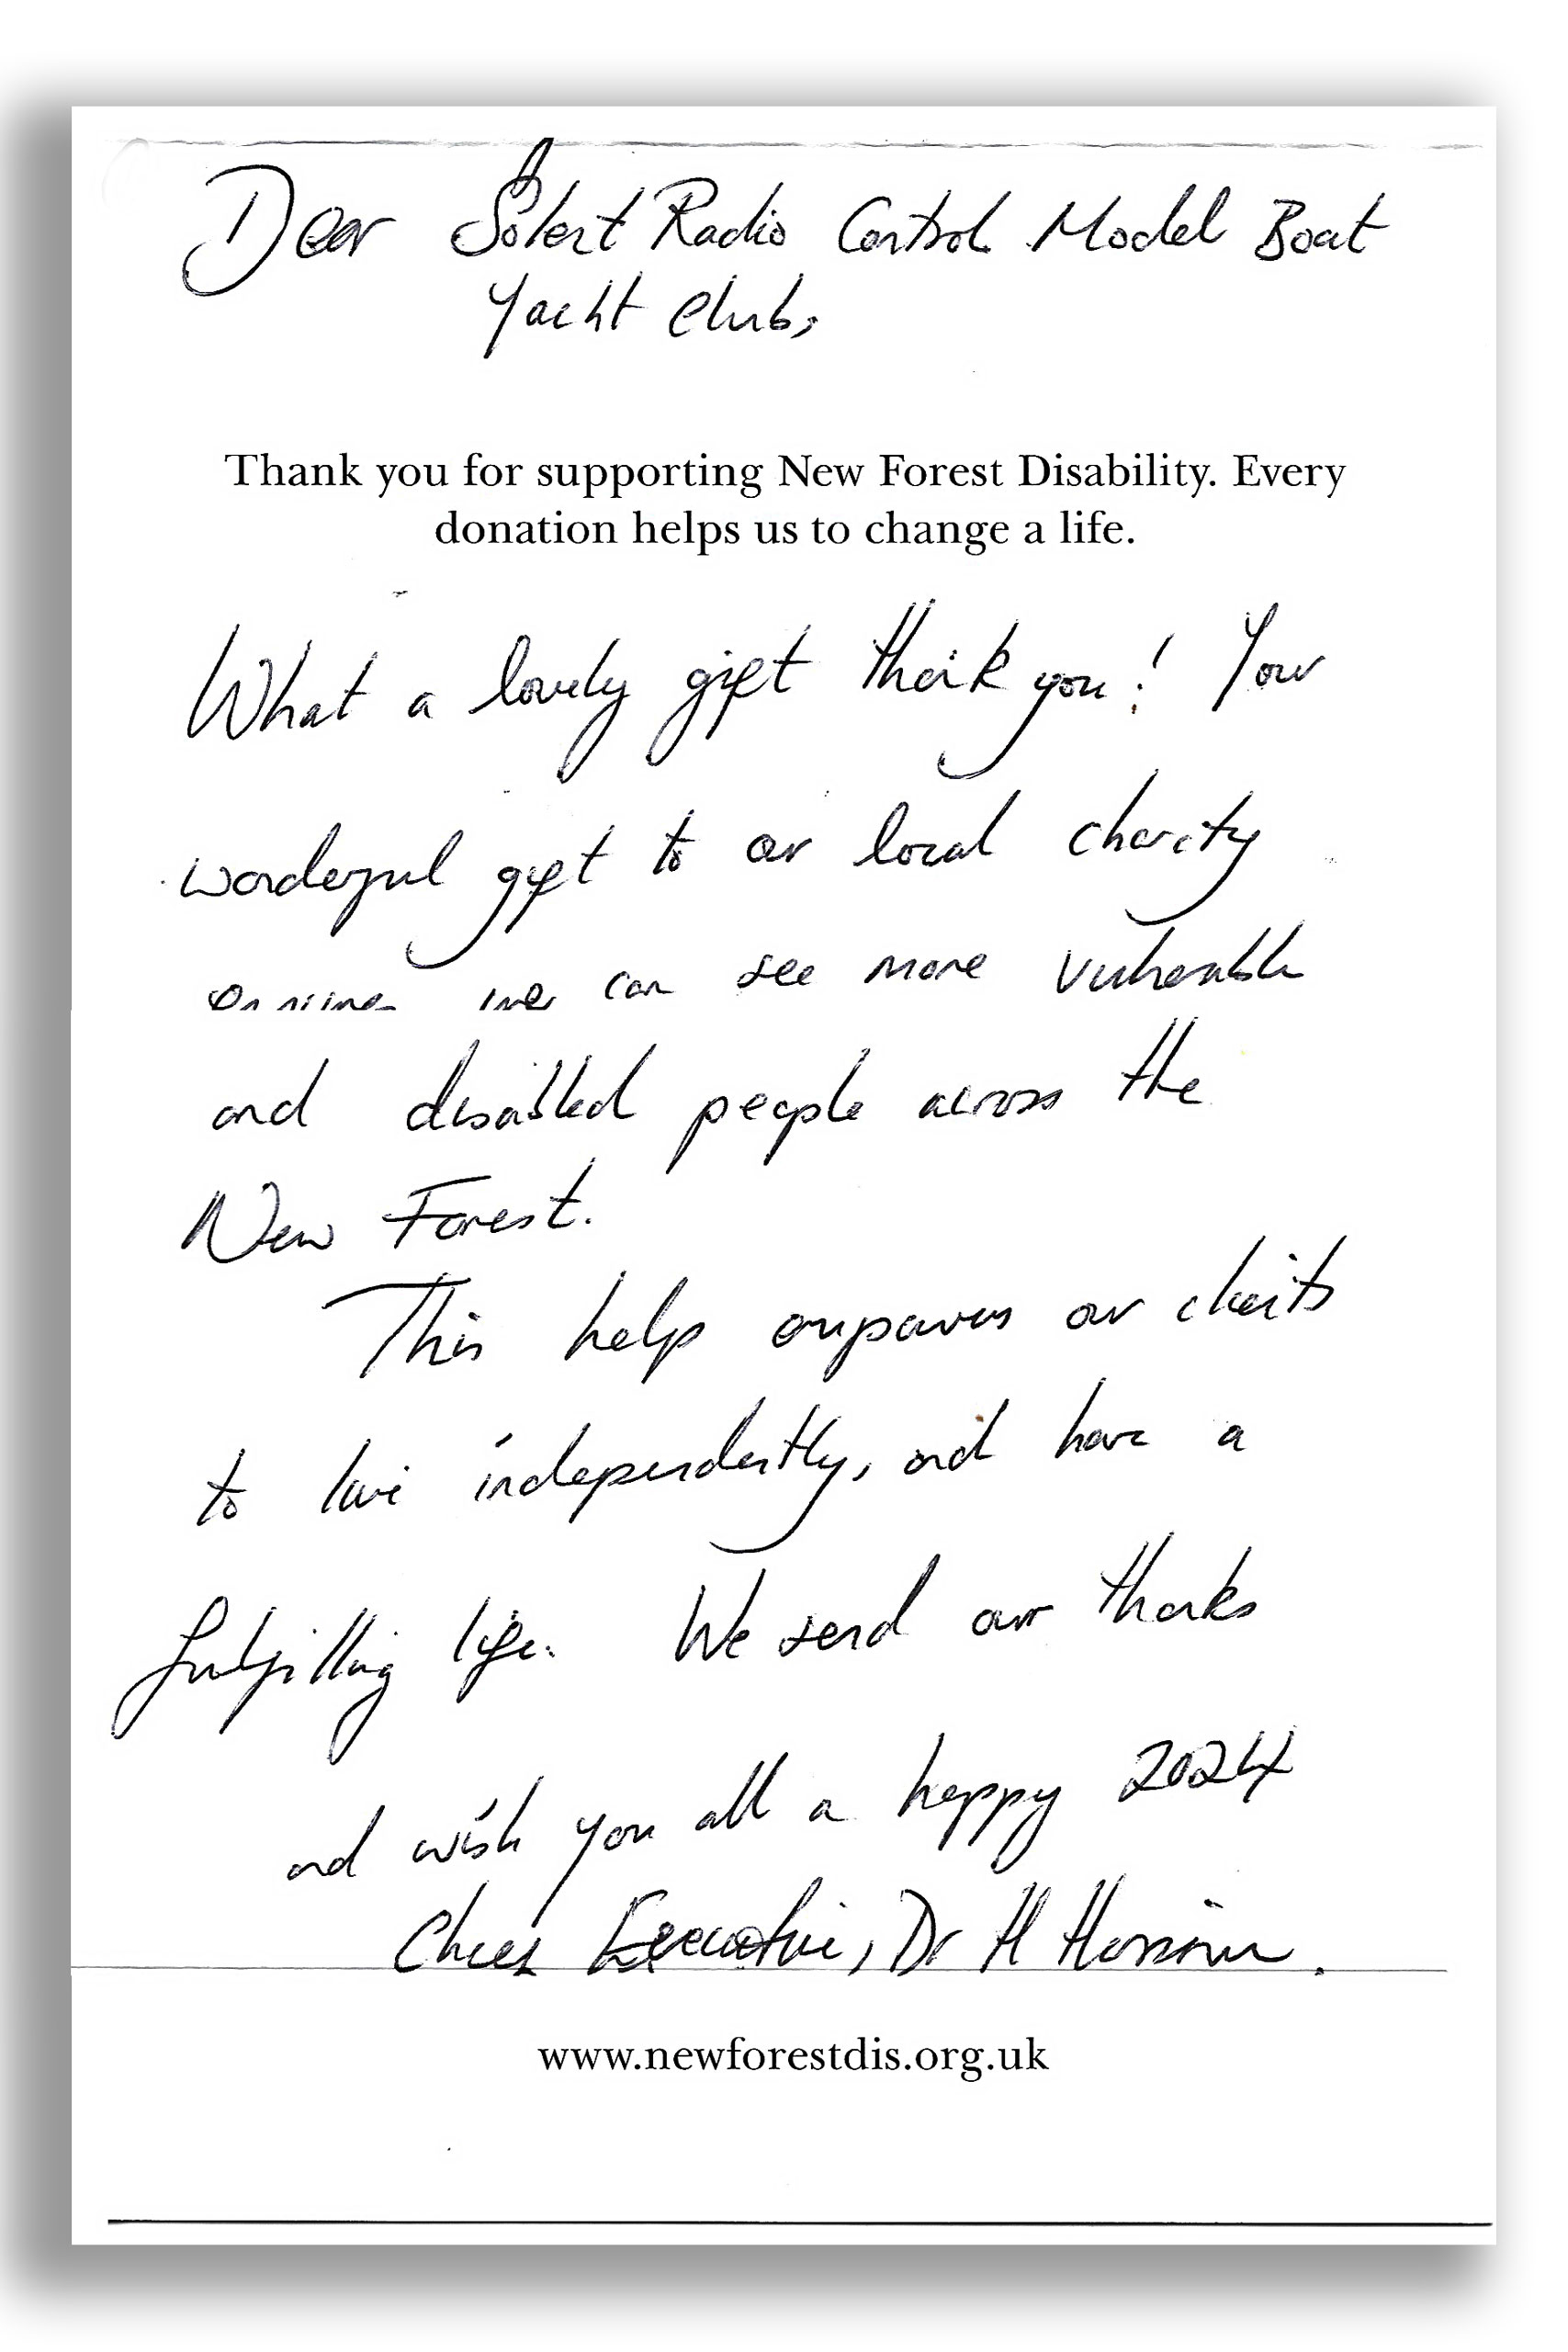 Dear Solent Radio Control Model Boat
Yacht Club,
Thank you for supporting New Forest Disability. Every
donation helps us to change a life.
What a lovely gift thank you! Your
wonderful gift to our local charity
can see more vulnerable
and disabled people across the
New Forest.
This help empowers our clients
to live independently, and have a
fulfilling life. We send our thanks
and wish you all a happy 2024
Chief Executive, Dr H
www.newforestdis.org.uk